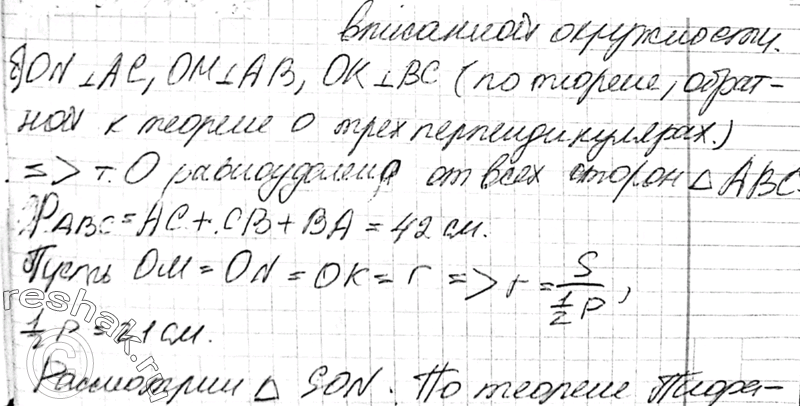 вписанной окружности.
ON⊥AC, OM⊥AB, OK⊥BC (по теореме, обрат-
ной к теореме о трех перпендикулярах.)
=> т. O равноудалена от всех сторон △ABC
P_ABC = AC + CB + BA = 42 см.
Пусть OM = ON = OK = r => r = S / (1/2 P),
1/2 P = 21 см.
Рассмотрим △ SON. По теореме Пифа-
reshak.ru